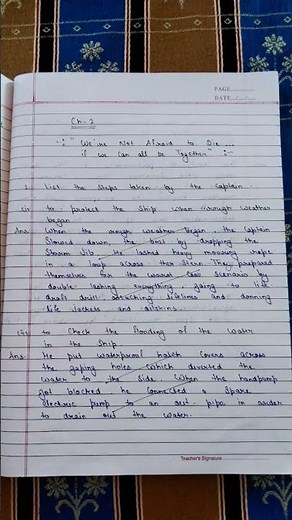 PAGE
DATE
Ch-2
":" We're Not Afraid to Die ...
if we Can all Be Together" :-
1. List the steps taken by the Captain
(i) to protect the Ship when rough weather
began.
Ans. When the rough weather began, the Captain
Slowed down the boat by dropping the
Storm jib. He lashed heavy mooring rope
in a loop across the stern. They prepared
themselves for the worst Case Scenario by
double lashing everything, going to life
draft drill, attaching lifelines and donning
life jackets and oilskins.
(ii) to Check the flooding of the water
in the Ship
Ans. He put waterproof hatch covers across
the gaping holes which diverted the
water to the side. When the handpump
got blocked he connected a Spare
electric pump to an out-pipe in order
to drain out the water.
Teacher's Signature